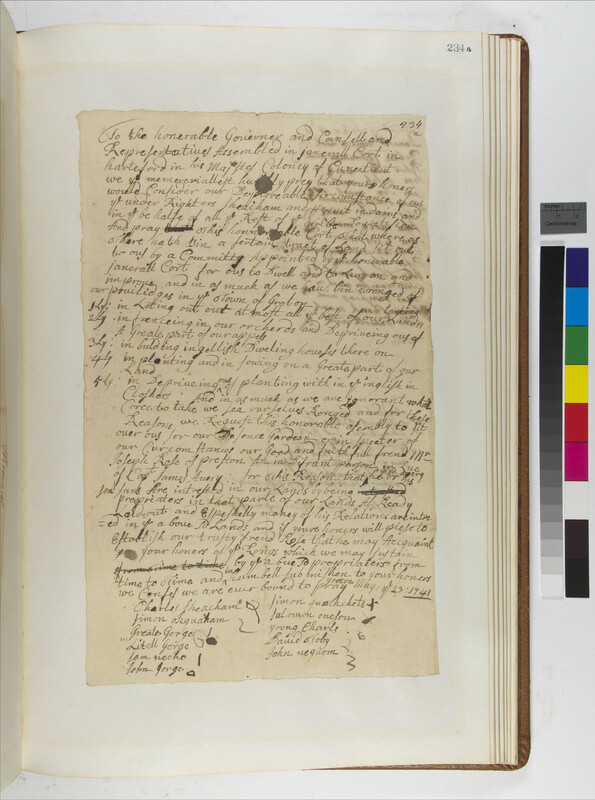 234a
234
a
To the honerable Gouerner and Counsell and
Representatives Assembled in janerall Cort in
hartford in his Majstes Coloney of Cunettecut
we yr memerreiallest humbly prey that yours honers
would Consider our Desploreable Circomstance of ous
ye under Righters Sheacham and
in ye be halfe of all ye Rest of ye
And pray this honnorable Cort, that where as
othere hath bin a sertain tract of Land Sit out
to ous by a Committe Appointed by ye honerable
janerall Cort for ous to Dwell and to Live on and
improve and in as much as we haue bin wronged of
our priuilidges in ye Town of Groton
1ly: in Loting out out at most all ye best of our Lands
2ly in fenceing in our orcherds and Depriueing ous of
A Greate part of our appels
3ly: in bulding ingellish Dweling houses there on
4ly in planting and in sowing on a Greate part of our
Land
5ly: in Depriveing ous planting with in ye inglish in
Closhers: And in as much as we are ignorant what
Corce to take we sea ourselues Ronged and for these
Reasons, we Request this honorable asembly to sit
over ous for our Defence Garden or in specter of
our Curcomstances our Good and faithfull frend Mr
Joseph Rose of preston
Capt James Avery: for this Reason that
are intrested in our Lands by being
propriaters in that parte of our Lands All Ready
Laid out and Espeshelly maney of his Relations are intre
=ed in ye a boue sd Lands and if youre honers will plese to
Establish our trusty frend Rose that he may Acquaint
your honers of ye Rongs which we may sustain
from time to time by ye a bue sd propriaters from
time to time and in humbell submishon to your honers
we Conses we are euer bound to pray Groton May: ye 23: 1741
Charles Sheacham
Simon quashckets
Simon
Salomon
Greate Gorge
young Charls
Litell Gorge
David toby
Sam necho
John nequom
John Gorge